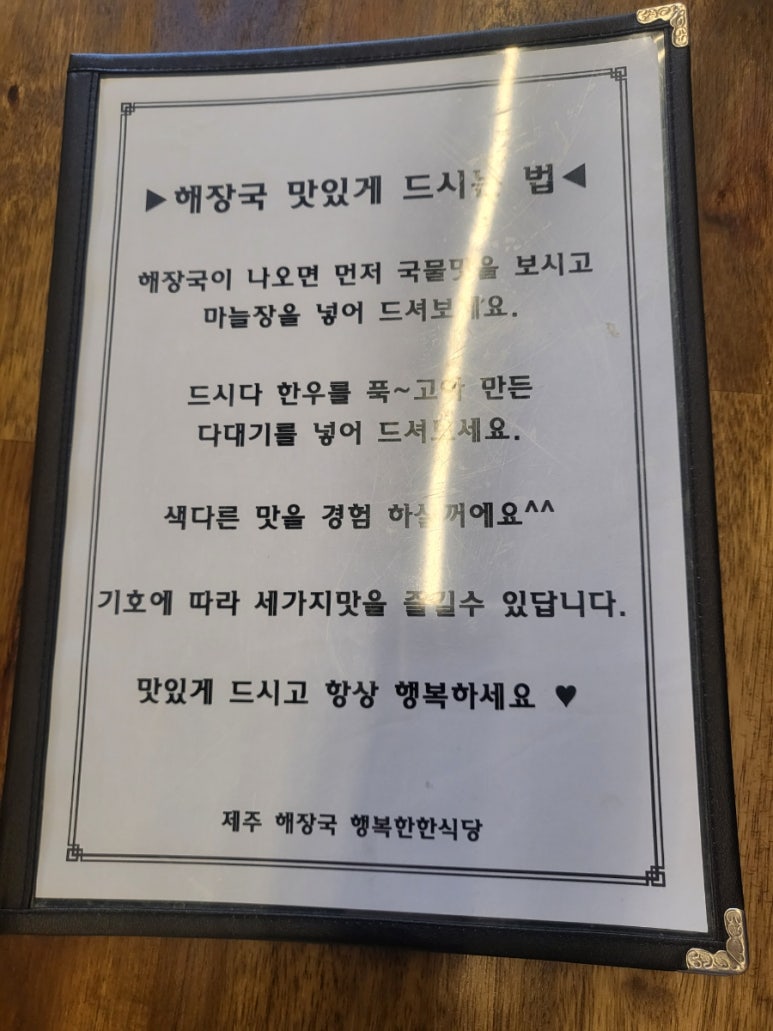 ▶해장국 맛있게 드시는 법◀
해장국이 나오면 먼저 국물맛을 보시고
마늘장을 넣어 드셔보세요.
드시다 한우를 푹~고아 만든
다대기를 넣어 드셔보세요.
색다른 맛을 경험 하실꺼에요^^
기호에 따라 세가지맛을 즐길수 있답니다.
맛있게 드시고 항상 행복하세요 ♥
제주 해장국 행복한한식당